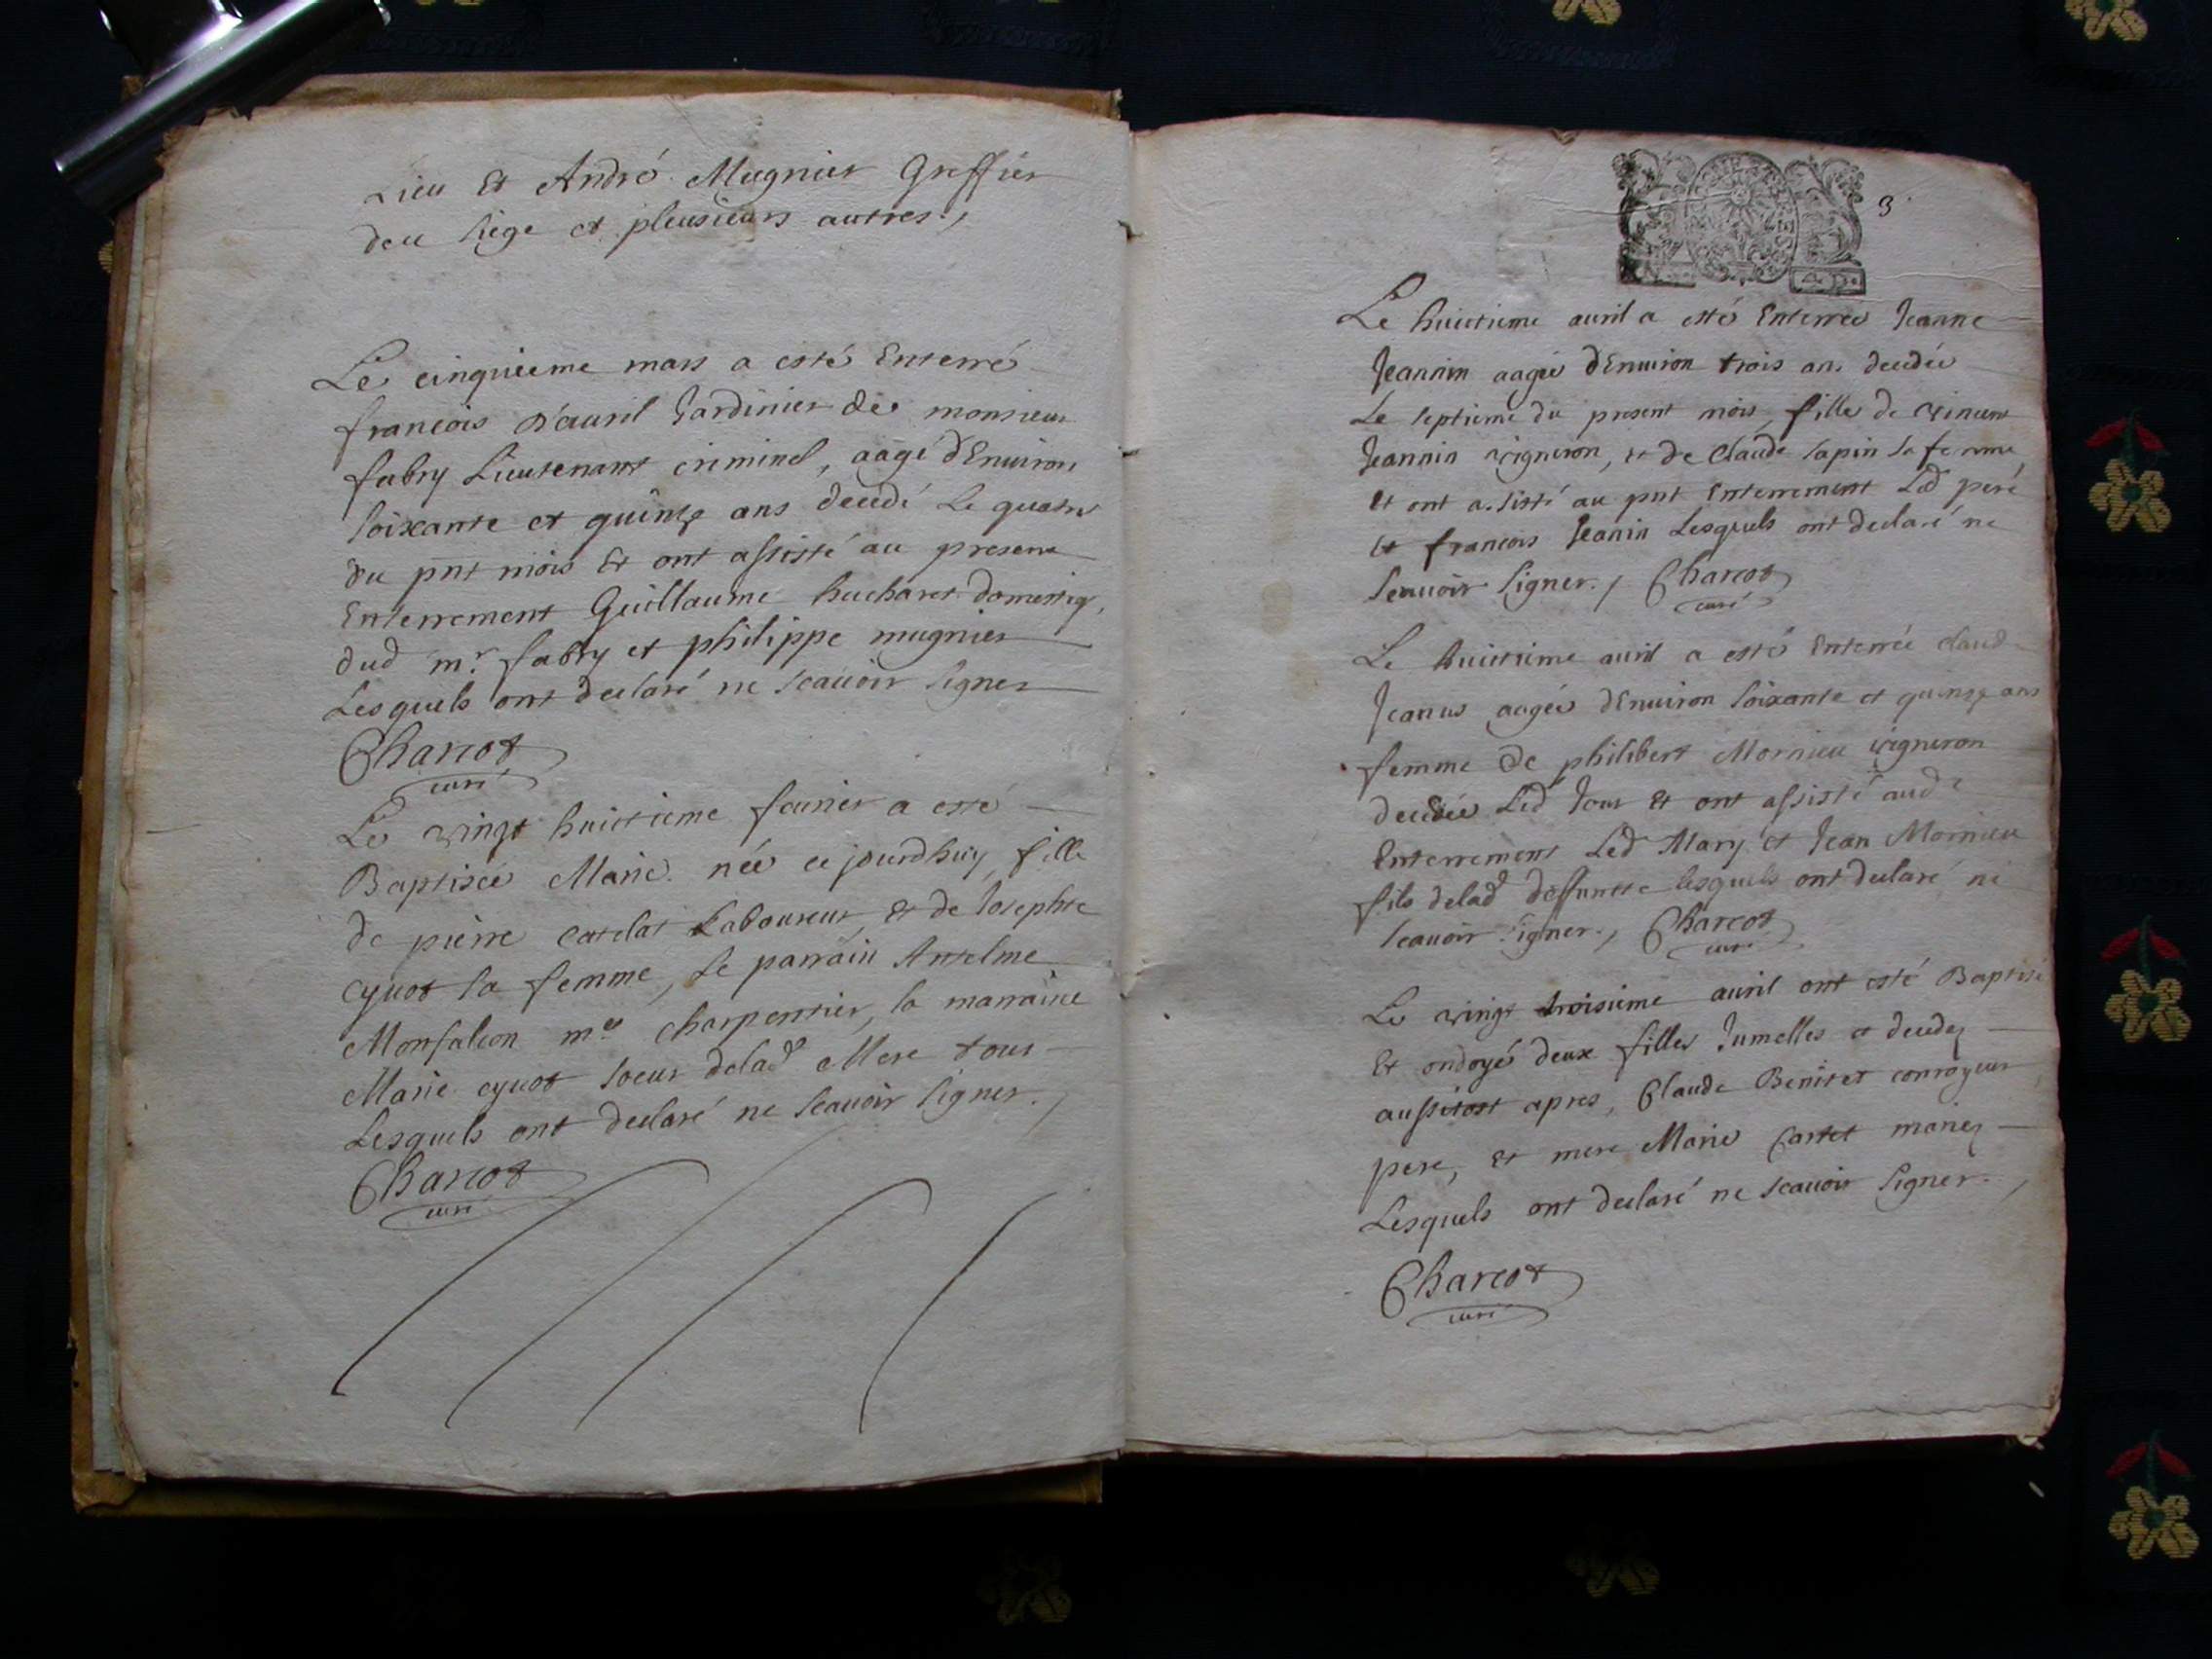 Lieu Et André Mugnier Greffier
deu siege et pleusieurs autres.,
Le cinquieme mars a esté Enterré
francois D'auril Jardinier de monsieur
fabry Lieutenant criminel, aagé dEnuiron
soixante et quinze ans decedé Le quatre
du pnt mois Et ont assisté au present
Enterrement Guillaume bucharet domestiq,
dud mr. fabry et philippe mugnier
Lesquels ont declaré ne scauoir signer
Charcot
curé
Le vingt huictieme feurier a esté
Baptisée Marie née ce jourdhuy, fille
de pierre Catelat Laboureur, et de Josephte
Cyuot sa femme, le parrain Antelme
Monfalcon me. charpentier, la marraine
Marie cyuot soeur delad Mere tous
Lesquels ont declaré ne scauoir signer.,
Charcot
curé
3.
Le huictieme auril a esté Enterrée Jeanne
Jeannin aagée dEnuiron trois ans decedée
Le septieme du present mois, fille de vincent
Jeannin vigneron, et de Claude sapin sa femme
et ont assisté au pnt Enterrement Led pere
et francois Jeanin Lesquels ont declaré ne
scauoir signer., Charcot
curé
Le huictieme auril a esté Enterrée claud
aagée dEnuiron soixante et quinze ans
femme de philibert Mornieu vigneron
decedée Led Jour Et ont assisté aud
Enterrement Led Mary et Jean Mornieu
fils delad deffuncte lesquels ont declaré ne
scauoir signer., Charcot
curé
Le vingt troisieme auril ont esté Baptisé
Et ondoyé deux filles Jumelles et decedez
aussitost apres, Claude Benitet conroyeur
pere, et mere Marie Cartet mariez
Lesquels ont declaré ne scauoir signer.,
Charcot
curé